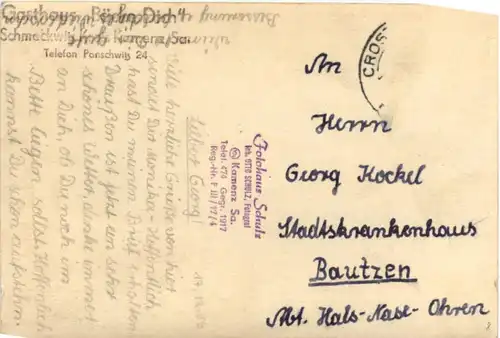 Gasthaus „Bück' Dich"
Schmeckwitz
Kamenz Sa.
Telefon Panschwitz 24
CROS
Lieber Georg
Viele herzliche Grüße von hier
sendet Dir Monika. Hoffentlich
hast Du meinen Brief erhalten
Draußen ist jetzt ein sehr
schönes Wetter, denke immer
an Dich ob Du noch im
Bette liegen sollst. Hoffentlich
kannst Du schon aufstehn.
Fotohaus Schulz
Inh. OTTO SCHULZ, Fotograf
Kamenz Sa.
Telef. 476 Gegr. 1917
An
Herrn
Georg Kockel
Stadtskrankenhaus
Bautzen
Abt. Hals-Nase-Ohren